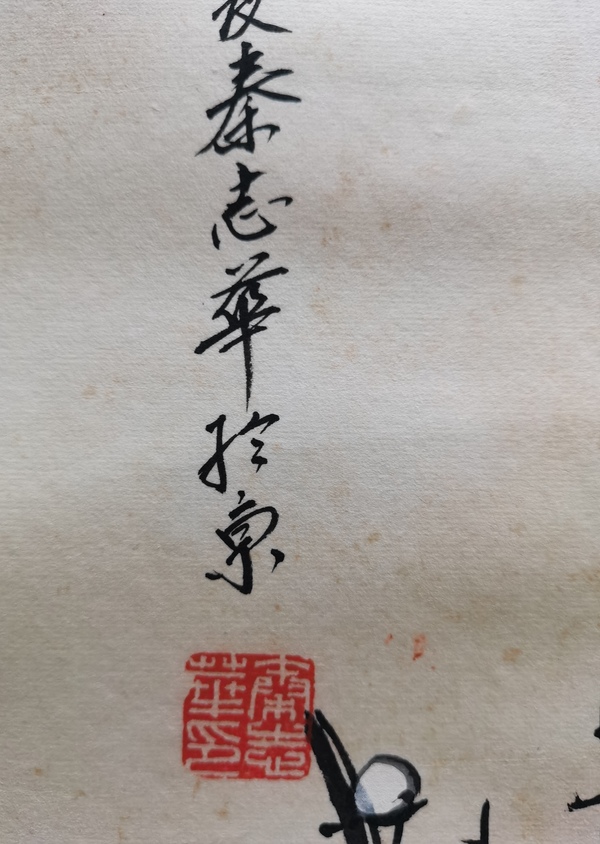 秦志華於京
秦志
華印